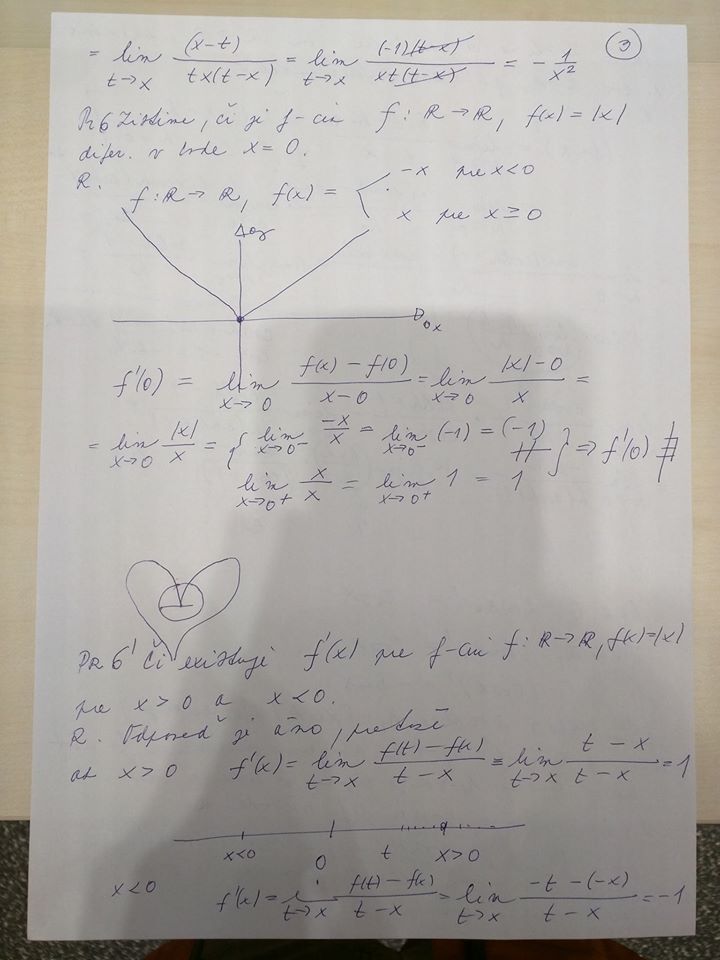 3
= lim_{t→x} (x-t) / (tx(t-x)) = lim_{t→x} (-1)(t-x) / (xt(t-x)) = - 1/x²
Pr 6 Zistime, či je f-cia f: R → R, f(x) = |x|
difer. v bode x = 0.
R.
f: R → R, f(x) = -x pre x<0
x pre x ≥ 0
oy
ox
f'(0) = lim_{x→0} (f(x) - f(0)) / (x-0) = lim_{x→0} (|x| - 0) / x =
= lim_{x→0} |x|/x = { lim_{x→0⁻} -x/x = lim_{x→0⁻} (-1) = (-1) ≠ } ⇒ f'(0) ∄
lim_{x→0⁺} x/x = lim_{x→0⁺} 1 = 1
Pr 6' Či existuje f'(x) pre f-ciu f: R → R, f(x)=|x|
pre x > 0 a x < 0.
R. Odpoveď je áno, pretože
ak x > 0 f'(x) = lim_{t→x} (f(t) - f(x)) / (t-x) = lim_{t→x} (t-x) / (t-x) = 1
x<0 0 t x>0
x<0 f'(x) = lim_{t→x} (f(t) - f(x)) / (t-x) = lim_{t→x} (-t-(-x)) / (t-x) = -1